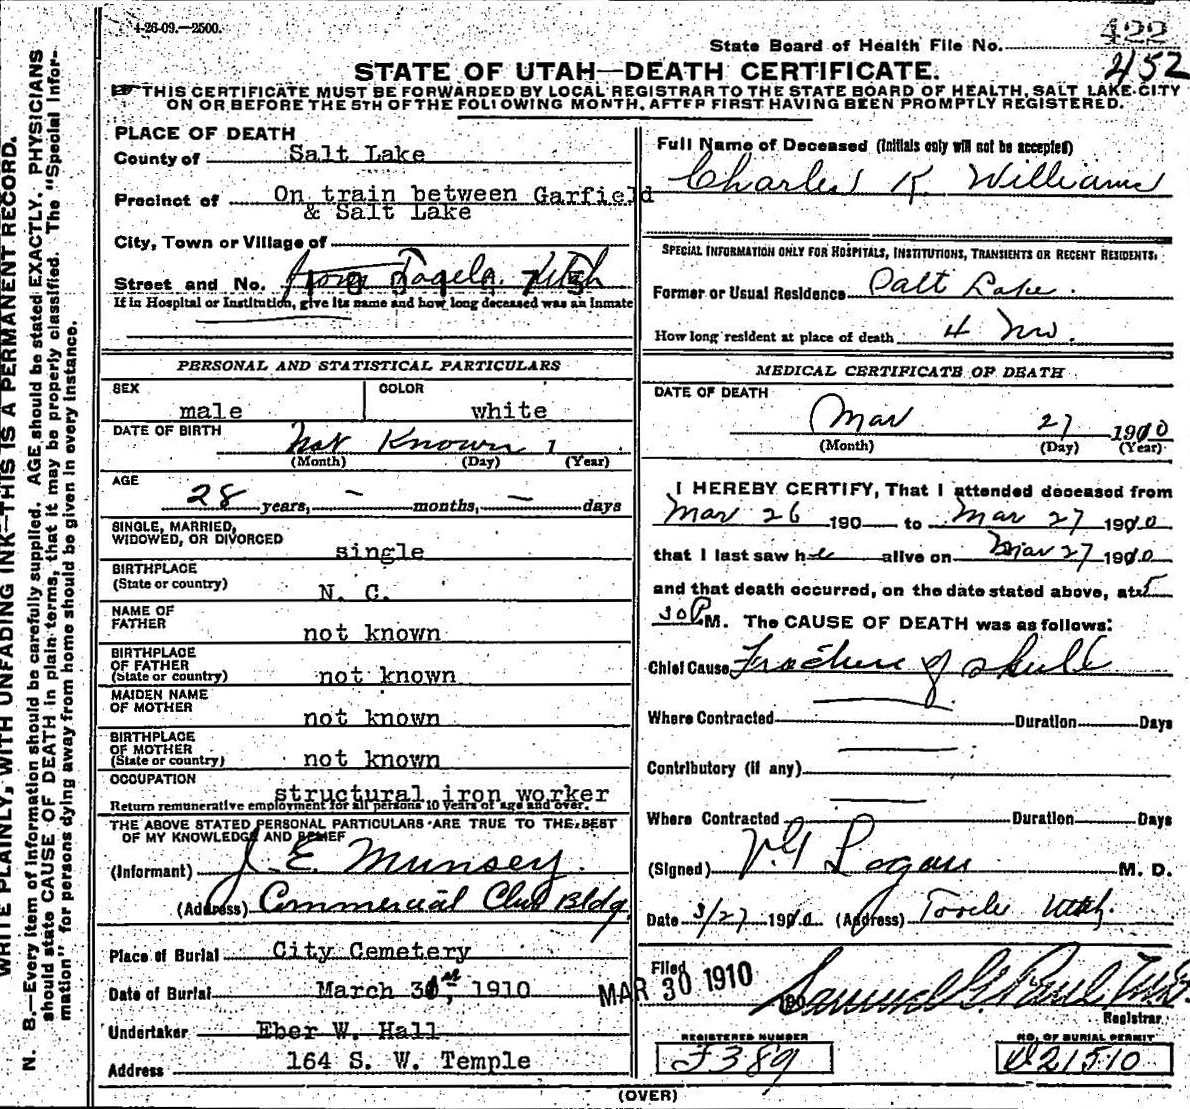 4-26-09.—2500.
422
State Board of Health File No. 452
STATE OF UTAH—DEATH CERTIFICATE.
THIS CERTIFICATE MUST BE FORWARDED BY LOCAL REGISTRAR TO THE STATE BOARD OF HEALTH, SALT LAKE CITY
ON OR BEFORE THE 5TH OF THE FOLLOWING MONTH, AFTER FIRST HAVING BEEN PROMPTLY REGISTERED.
WRITE PLAINLY, WITH UNFADING INK—THIS IS A PERMANENT RECORD.
N. B.—Every item of information should be carefully supplied. AGE should be stated EXACTLY. PHYSICIANS
should state CAUSE OF DEATH in plain terms, that it may be properly classified. The "Special Infor-
mation" for persons dying away from home should be given in every instance.
PLACE OF DEATH
County of Salt Lake
Precinct of On train between Garfield
& Salt Lake
City, Town or Village of
Street and No. from Utah
If in Hospital or Institution, give its name and how long deceased was an Inmate
PERSONAL AND STATISTICAL PARTICULARS
SEX male
COLOR white
DATE OF BIRTH Not Known 1
(Month) (Day) (Year)
AGE
28 years, — months, — days
SINGLE, MARRIED,
WIDOWED, OR DIVORCED single
BIRTHPLACE
(State or country) N. C.
NAME OF
FATHER not known
BIRTHPLACE
OF FATHER
(State or country) not known
MAIDEN NAME
OF MOTHER not known
BIRTHPLACE
OF MOTHER
(State or country) not known
OCCUPATION structural iron worker
Return remunerative employment for all persons 10 years of age and over.
THE ABOVE STATED PERSONAL PARTICULARS ARE TRUE TO THE BEST
OF MY KNOWLEDGE AND BELIEF
(Informant) J. E. Munsey
(Address) Commercial Club Bldg.
Place of Burial City Cemetery
Date of Burial March 31st, 1910
Undertaker Eber W. Hall
Address 164 S. W. Temple
Full Name of Deceased (Initials only will not be accepted)
Charles K. Williams
SPECIAL INFORMATION ONLY FOR HOSPITALS, INSTITUTIONS, TRANSIENTS OR RECENT RESIDENTS.
Former or Usual Residence Salt Lake.
How long resident at place of death 4 mo.
MEDICAL CERTIFICATE OF DEATH
DATE OF DEATH
Mar 27 1910
(Month) (Day) (Year)
I HEREBY CERTIFY, That I attended deceased from
Mar 26 190 to Mar 27 1910
that I last saw h alive on Mar 27 1910
and that death occurred, on the date stated above, at 5
30 P. M. The CAUSE OF DEATH was as follows:
Chief Cause Fracture of skull
Where Contracted Duration Days
Contributory (if any)
Where Contracted Duration Days
(Signed) Logan M. D.
Date 3/27 1910 (Address) Tooele Utah.
Filed MAR 30 1910 190
Samuel G. Paul
Registrar
REGISTERED NUMBER
F389
NO. OF BURIAL PERMIT
D21510
(OVER)